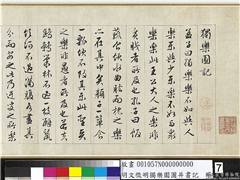 獨樂園記
孟子曰獨樂樂不如與人
樂樂與少樂樂不如與眾
樂樂此王公大人之樂非
貧賤者所及也孔子曰飯
蔬食飲水曲肱而枕之樂
在其中矣顏子一簞食
一瓢飲不改其樂此聖賢
之樂非愚者所及也若夫
鷦鷯巢林不過一枝鼴鼠
飲河不過滿腹各盡其
分而安之此乃迂叟之所樂
故畫001057N000000000
明文徵明獨樂園圖并書記
7